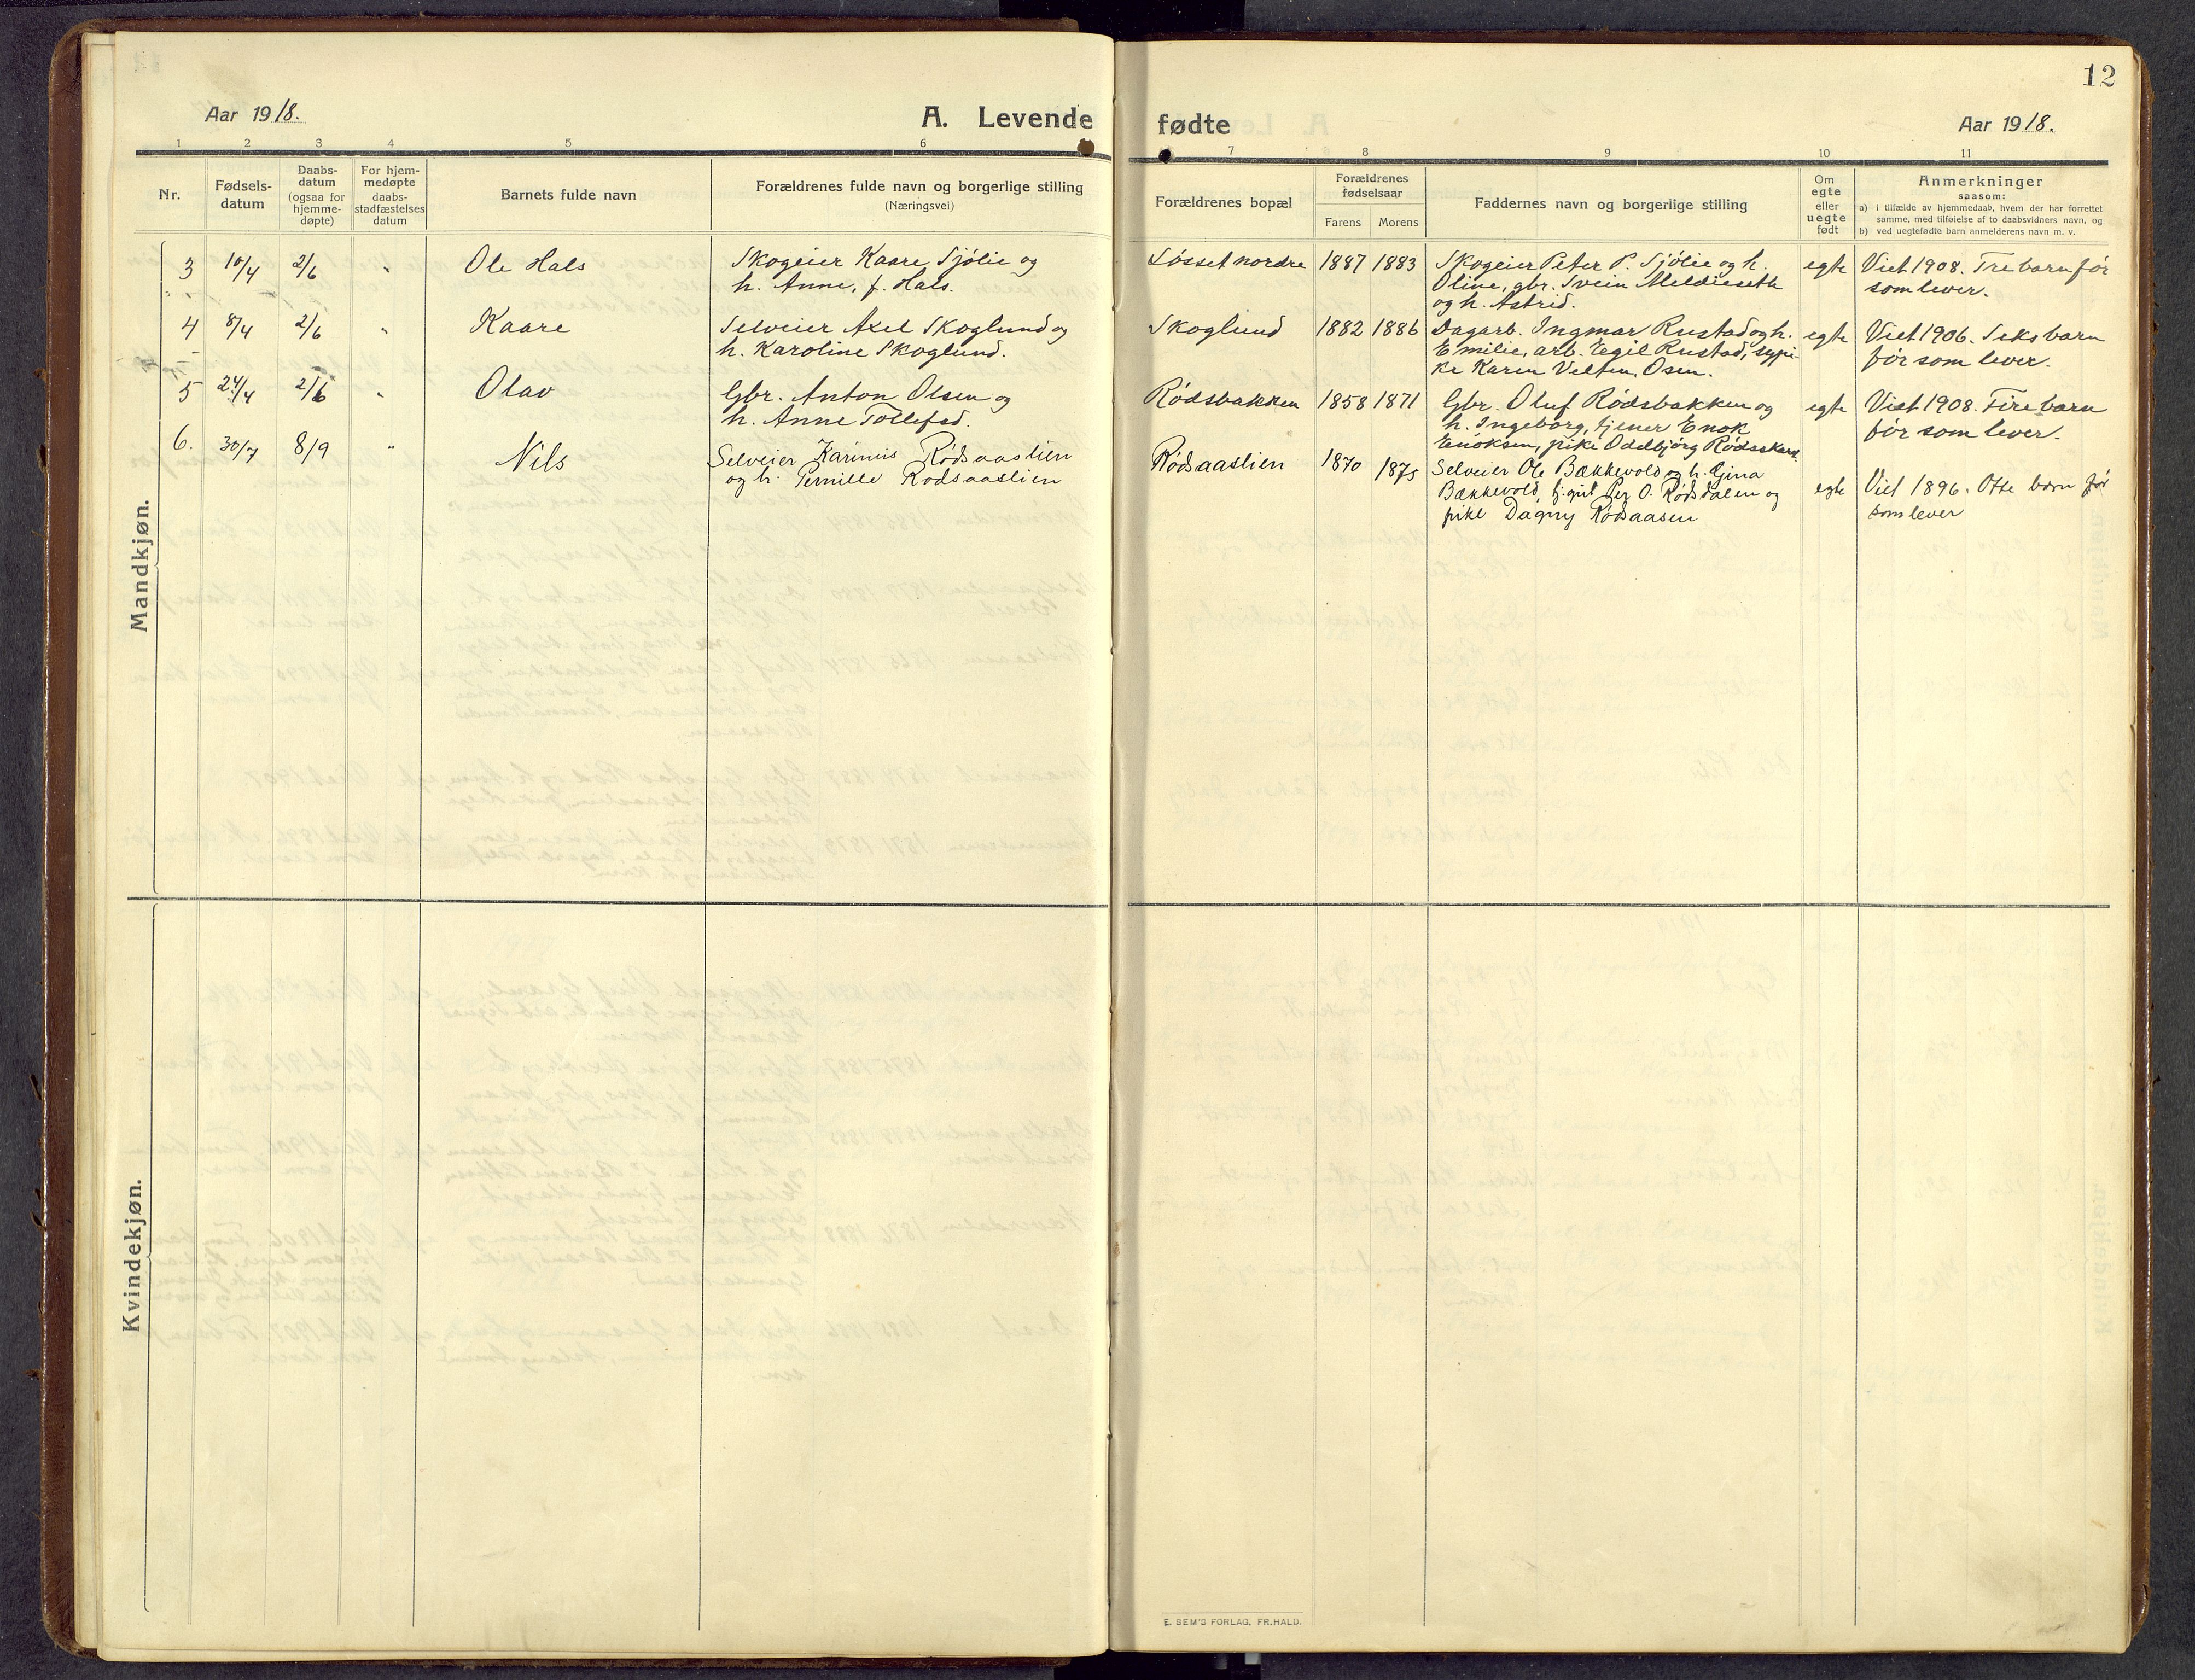 12
Aar 1918.
A. Levende fødte
Aar 1918.
1 2 3 4 5 6 7 8 9 10 11
Nr.
Fødsels-
datum
Daabs-
datum
(ogsaa for
hjemme-
døpte)
For hjem-
medøpte
daabs-
stadfæstelses
datum
Barnets fulde navn
Forældrenes fulde navn og borgerlige stilling
(Næringsvei)
Forældrenes bopæl
Forældrenes
fødselsaar
Farens Morens
Faddernes navn og borgerlige stilling
Om
egte
eller
uegte
født
Anmerkninger
saasom:
a) i tilfælde av hjemmedaab, hvem der har forrettet
samme, med tilføielse af to daabsvidners navn, og
b) ved uegtefødte barn anmelderens navn m. v.
Mandkjøn.
3 10/4 2/6 " Ole Hals
Skogeier Kaare Sjölie og
h. Anne, f. Hals.
Løsset nordre 1887 1883
Skogeier Peter P. Sjölie og h.
Oline, gbr. Svein Meldieseth
og h. Astrid.
egte
Viet 1908. Tre barn før
som lever.
4 8/4 2/6 " Kaare
Selveier Axel Skoglund og
h. Karoline Skoglund.
Skoglund 1882 1886
Dagarb. Ingmar Rustad og h.
Emilie, arb. Egil Rustad, sypi-
ke Karen Velten, Osen.
egte
Viet 1906. Seks barn
før som lever.
5 24/4 2/6 " Olav
Gbr. Anton Olsen og
h. Anne Tollefsd.
Rødsbakken 1858 1871
Gbr. Oluf Rødsbakken og
h. Ingeborg, tjener Enok
Enoksen, pike Oddbjörg Rødsskard.
egte
Viet 1908. Fire barn
før som lever.
6. 30/7 8/9 " Nils
Selveier Karinus Rødsaaslien
og h. Pernille Rødsaaslien
Rødsaaslien 1870 1875
Selveier Ole Bækkevold og h. Gina
Bækkevold, tj.gut Per O. Rødsdalen og
pike Dagny Rødsaasen
egte
Viet 1896. Otte barn før
som lever
Kvindekjøn.
E. SEM'S FORLAG, FR.HALD.